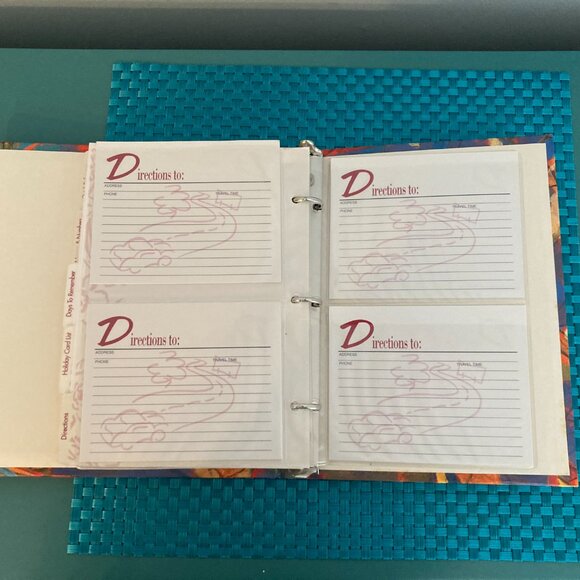 Directions to:
ADDRESS
PHONE TRAVEL TIME
Directions to:
ADDRESS
PHONE TRAVEL TIME
Directions to:
ADDRESS
PHONE TRAVEL TIME
Directions to:
ADDRESS
PHONE TRAVEL TIME
Days To Remember
Holiday Card List
Directions